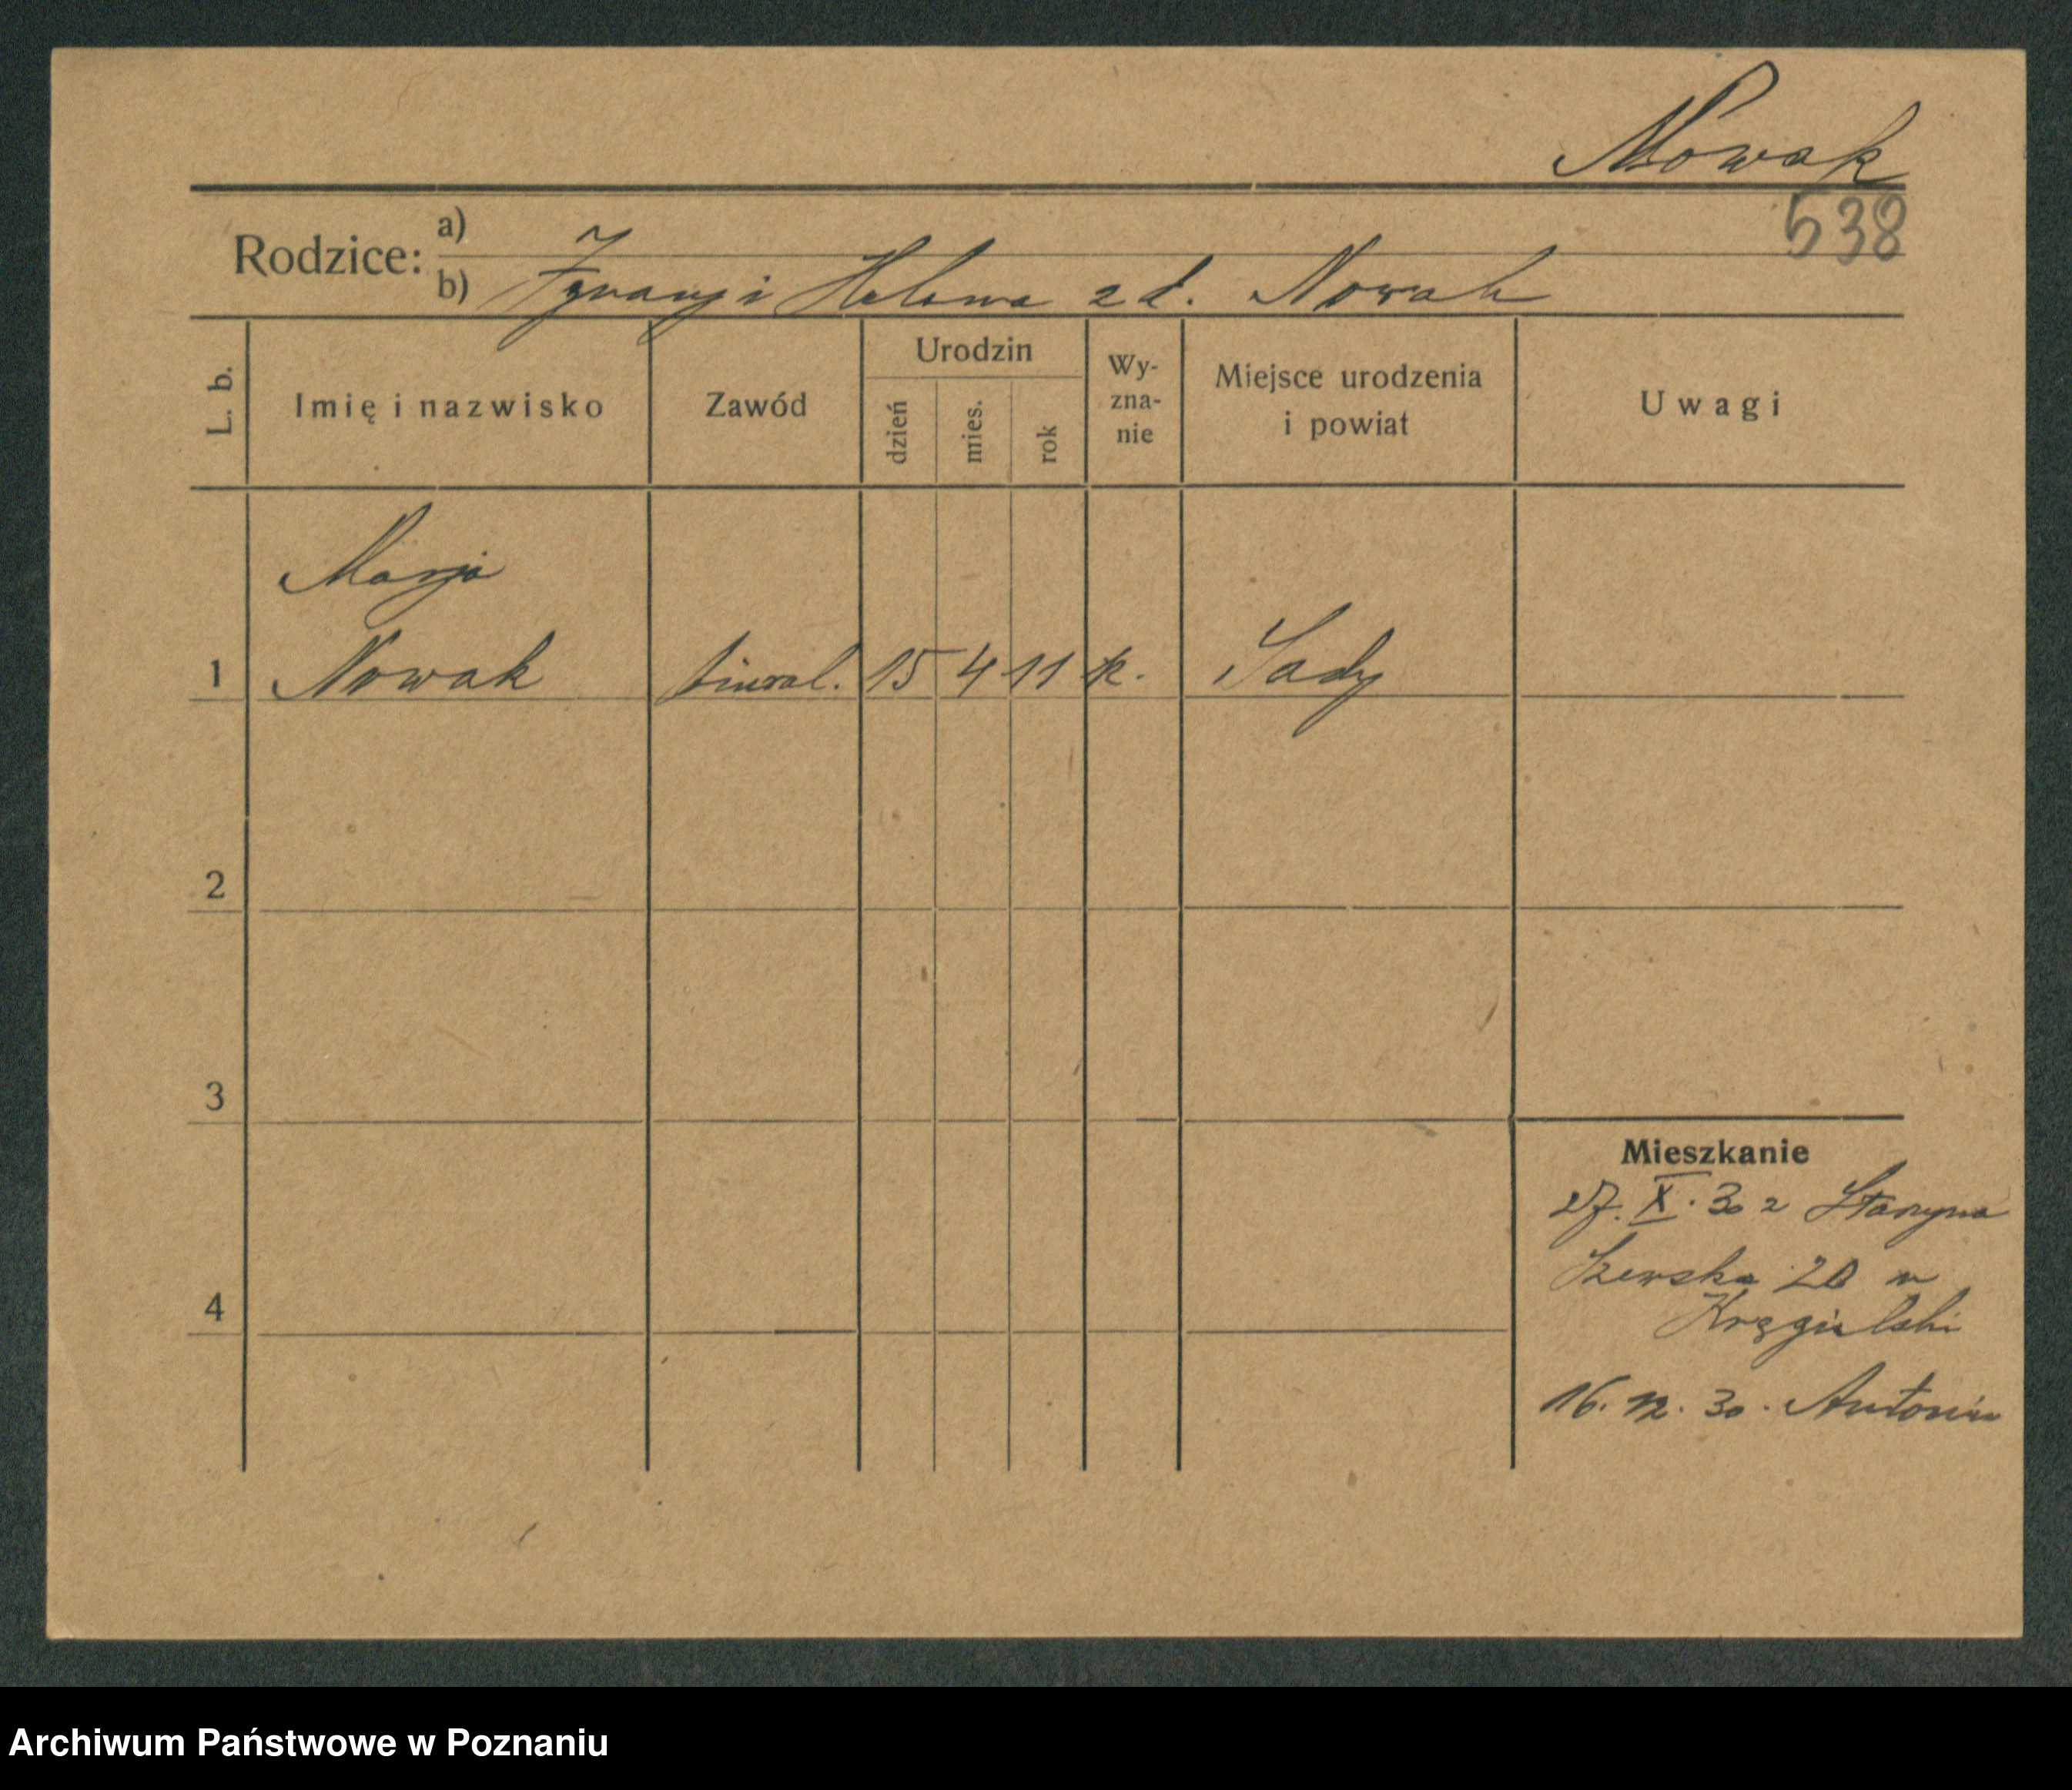 Nowak
538
Rodzice:
a)
b) Ignacy i Helena z d. Nowak
L. b.
Imię i nazwisko
Zawód
Urodzin
dzień
mies.
rok
Wy-
zna-
nie
Miejsce urodzenia
i powiat
Uwagi
Marja
1 Nowak biural. 15 4 11 k. Sady
2
3
4
Mieszkanie
27. X. 30 z
Szewska 20 w
16. 12. 30. Antonin
Archiwum Państwowe w Poznaniu